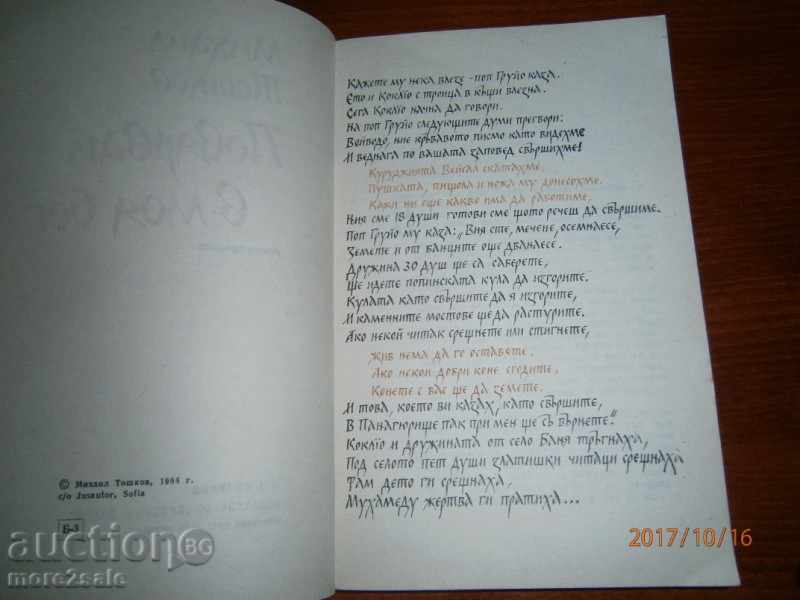 © Михаил Тошков, 1984 г.
c/o Jusautor, Sofia
Б-3
Кажете му нека влезе – поп Грую каза.
Ето и Коклю с троица в къщи влезна.
Сега Коклю начна да говори.
на поп Грую следующите думи преговри:
Войводо, ние кръвавото писмо като видехме
И веднага по вашата заповед свършихме!
Куруджията Вейсал скатахме,
Пушката, пищола и ножа му донесохме.
Кажи ни още какво има да работиме,
Ыия сме 18 души готови сме щото речеш да свършиме.
Поп Грую му каза: „Вия сте, мечене, осемнаесе,
Земете и от банците още дванаесе.
Дружина 30 душ ще са саберете,
Ще идете попинската кула да изгорите.
Кулата като свършите да я изгорите,
И каменните мостове ще да растурите.
Ако некой читак срещнете или стигнете,
Жив нема да го оставяте.
Ако некои добри коне сгодите,
Конете с вас ще да земете.
И това, което ви казах, като свършите,
В Панагюрище пак при мен ще съ върнете."
Коклю и дружината от село Баня тръгнаха,
Под селото пет души златишки читаци срещнаха
Там дето ги срещнаха,
Мухамеду жертва ги пратиха...
2017/10/16
auction BG
more2sale